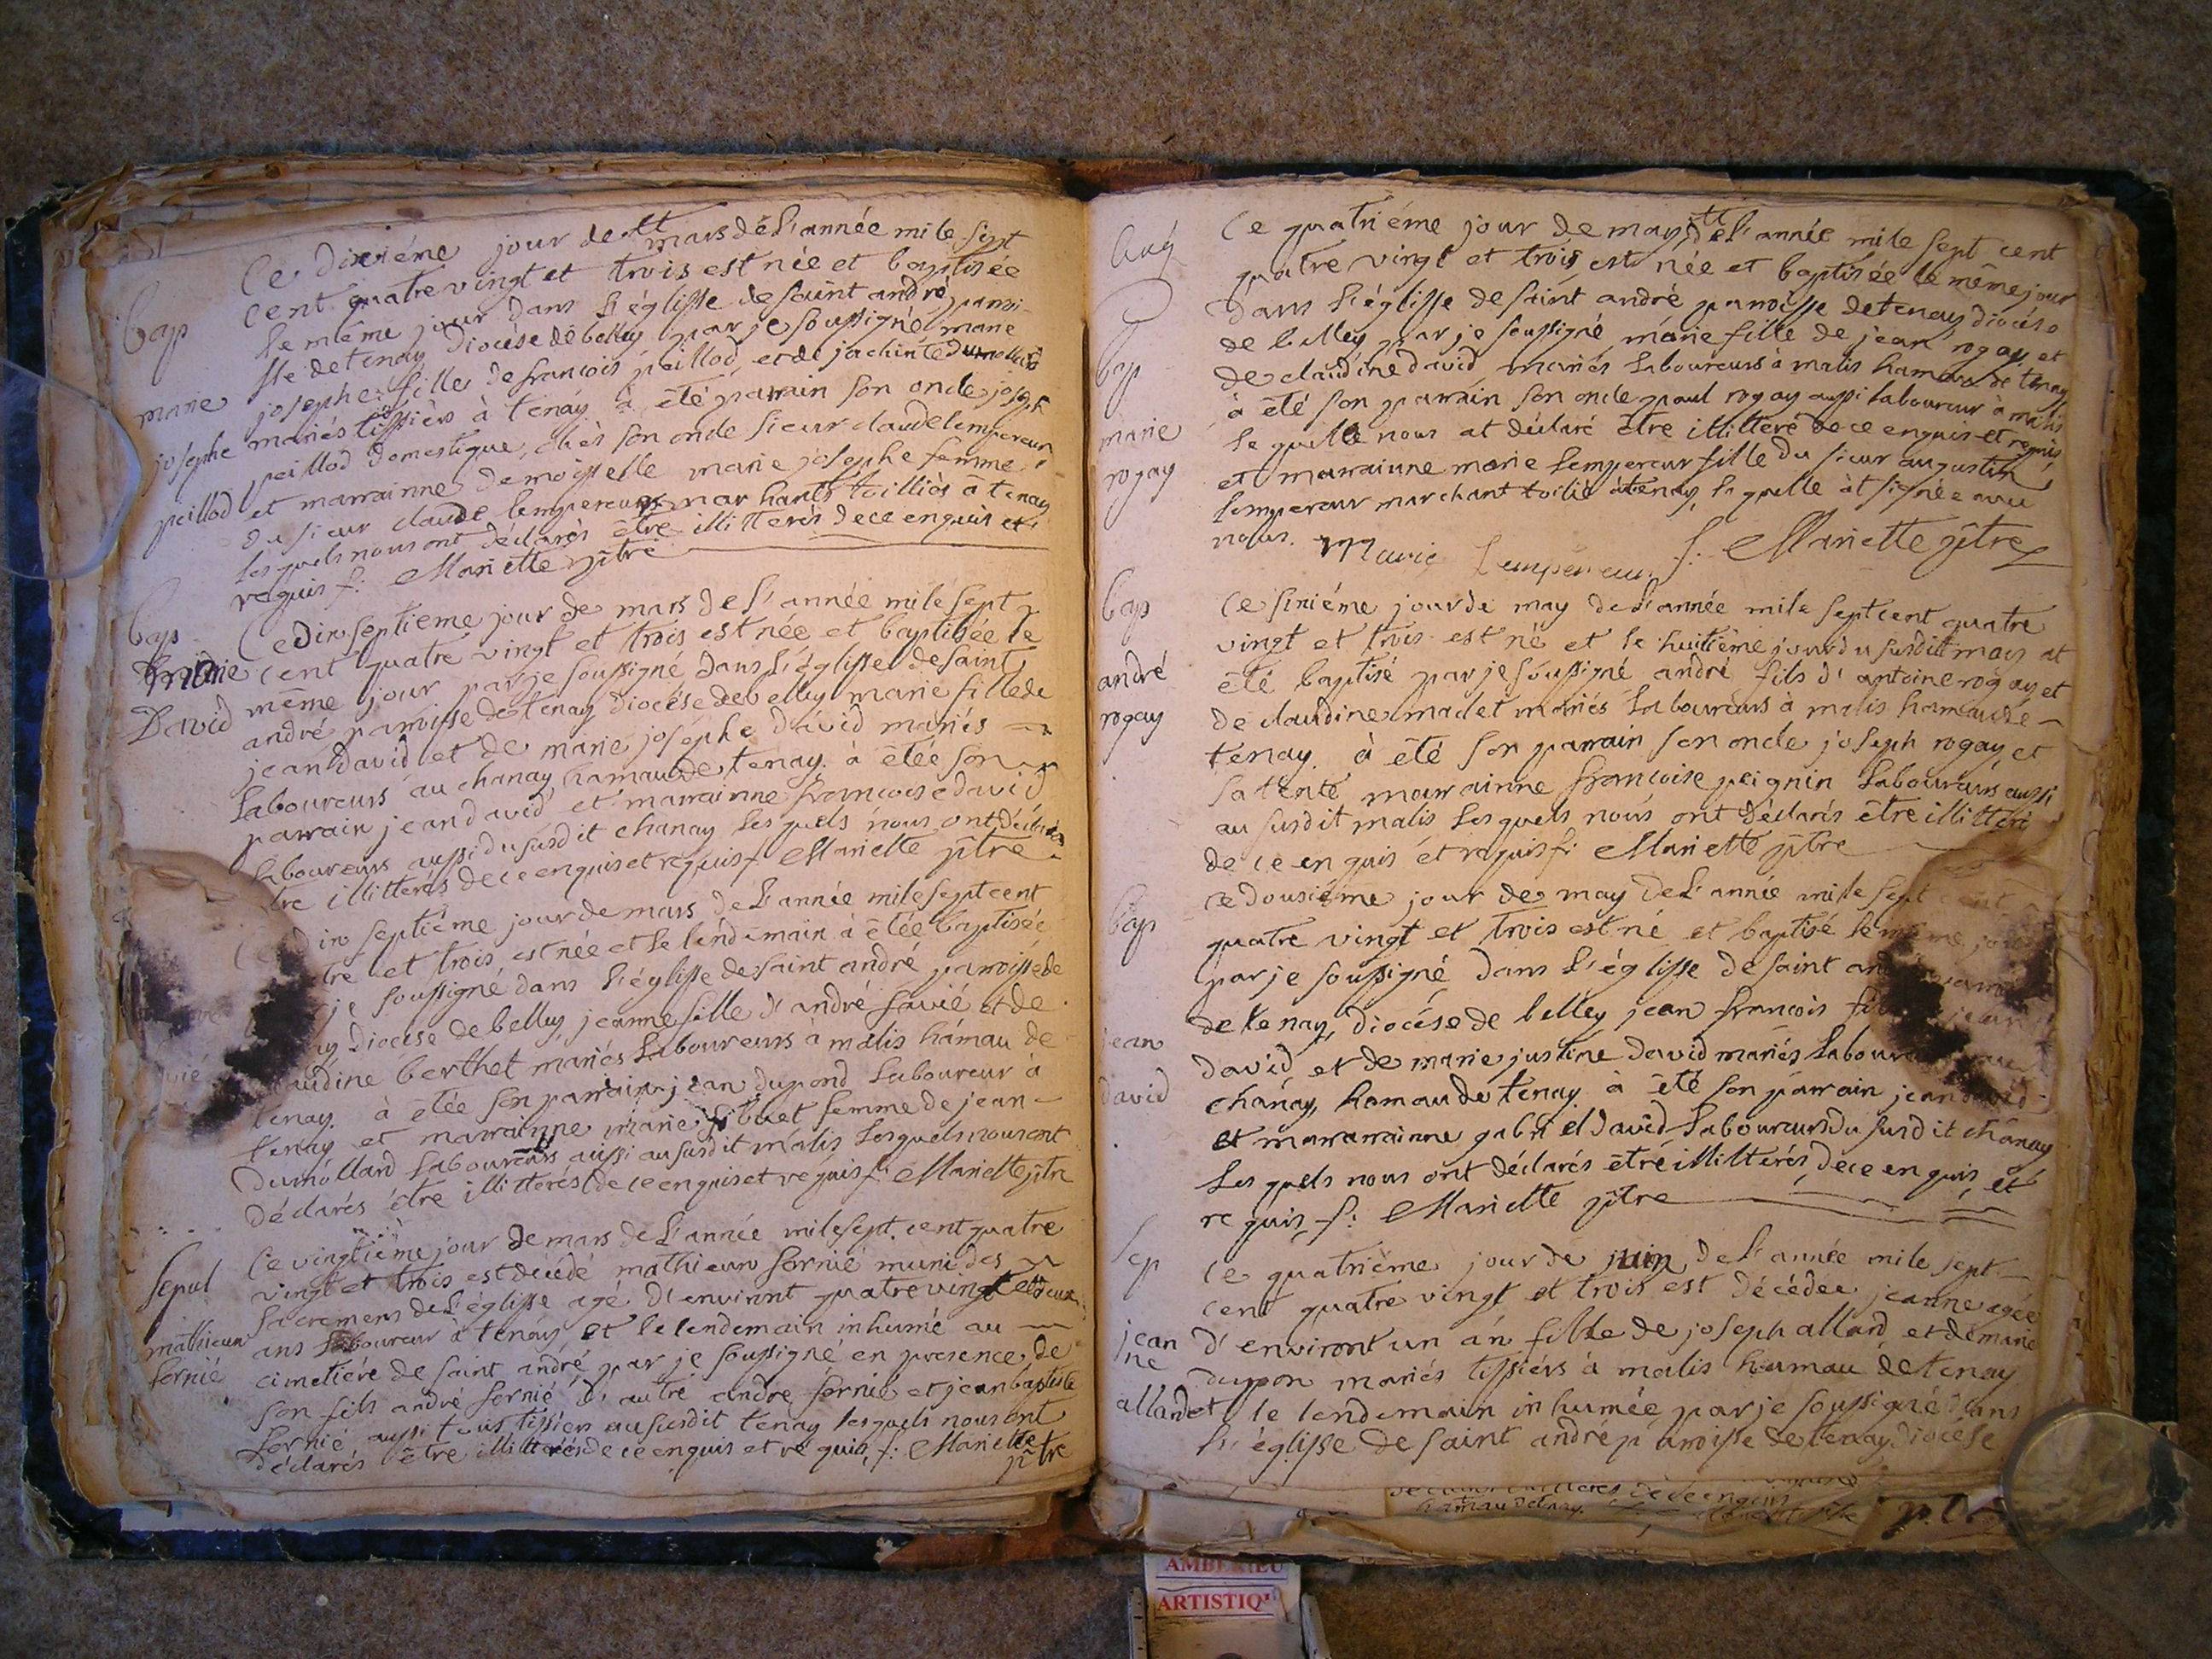 Ce dixiéme jour de mars de L'année mile sept
cent quatre vingt et trois est née et baptisée
bap
le même jour dans L'églisse de saint andré paroi-
sse de tenay diocése de belley par je soussigné marie
marie
josephe fille de francois peillod et de jachinte dumollard
josephe
mariés tissièrs à tenay à été parrain son oncle joseph
peillod domestique, chès son oncle sieur claude lempereur
peillod
et marrainne demoisselle marie josephe femme
du sieur claude lempereur marchants toilliès à tenay
lesquels nous ont déclarés être illitterés de ce enquis et
requis f: Mariette ptre
bap
Ce dix septieme jour de mars de L'année mile sept
marie
cent quatre vingt et trois est née et baptisée le
David
même jour par je soussigné dans L'églisse de saint
andré paroisse de tenay diocése de belley marie fille de
jean david et de marie josephe david mariés
laboureurs au chanay hamau de tenay. à étée son
parrain jean david et marrainne francoise david
laboureurs aussi du susdit chanay lesquels nous ont déclarés
tre illitterés de ce enquis et requis f: Mariette ptre
dix septiéme jour de mars de L'année mile sept cent
tre et trois est née et le lendemain à étée baptisée
je soussigné dans L'églisse de saint andré paroisse de
ay diocése de belley jeanne fille d'andré savié et de
vié
audine berthet mariés laboureurs à malis hámau de
tenay. à étée son parrain jean dupond laboureur à
tenay et marrainne marie femme de jean
dumollard laboureurs aussi au susdit malis lesquels nous ont
déclarés être illitterés de ce enquis et requis f: Mariette ptre
Ce vingtième jour de mars de L'année mile sept cent quatre
sepul
vingt et trois est décédé mathieux sornié muni des
sacremens de L'églisse agé d'environt quatre vingt et deux
mathieux
ans laboureur à tenay et le lendemain inhumé au
sornié
cimetiére de saint andré par je soussigné en presence de
son fils andré sornié d'autre andre sornié et jean baptiste
sornié aussi tous tissiers au susdit tenay lesquels nous ont
déclarés être illitterés de ce enquis et requis f: Mariette
ptre
bap
Ce quatriéme jour de may de L'année mile sept cent
quatre vingt et trois est née et baptisée le même jour
dans L'églisse de saint andré paroisse de tenay diocése
bap
de belley par je soussigné marie fille de jean rogay et
de claudine david mariés laboureurs à malis hamau de tenay
marie
à été son parrain son oncle paul rogay aussi laboureur à malis
rogay
le quelle nous at déclaré être illitteré de ce enquis et requis
et marrainne marie lempereur fille du sieur augustin
lempereur marchant toiliè à tenay la quelle àt signée avec
nous. Marie Lempereur f: Mariette ptre
bap
Ce sixiéme jour de may de L'année mile sept cent quatre
vingt et trois est né et le huitième jour du susdit may at
andré
été baptisé par je soussigné andré fils d'antoine rogay et
rogay
de claudine madet mariés laboureurs à malis hamau de
tenay. à été son parrain son oncle joseph rogay et
sa tente marrainne francoise peignin laboureurs aussi
au susdit malis lesquels nous ont déclarés être illitteré
de ce enquis et requis f: Mariette ptre
bap
ce dousiéme jour de may de L'année mile sept cent
quatre vingt et trois est né et baptisé le même jour
par je soussigné dans L'églisse de saint an
de tenay, diocése de belley jean francois fils jean
jean
david et de marie justine david mariés labour
david
chánay hamau de tenay. à été son parrain jean david
et marrainne gabriel david laboureurs du susdit chánay
lesquels nous ont déclarés être illitterés, de ce enquis, et
requis, f: Mariette ptre
sep
Ce quatrième jour de juin de L'année mile sept
cent quatre vingt et trois est décédee jeanne agée
jean
ne
d'environt un án fille de joseph allard et de marie
dupon mariés tissiérs à malis hamau de tenay
allard
et le lendemain inhumée par je soussigné dans
L'églisse de saint andré paroisse de tenay diocése
hamau de tenay.
AMBERIEU
ARTISTIQ